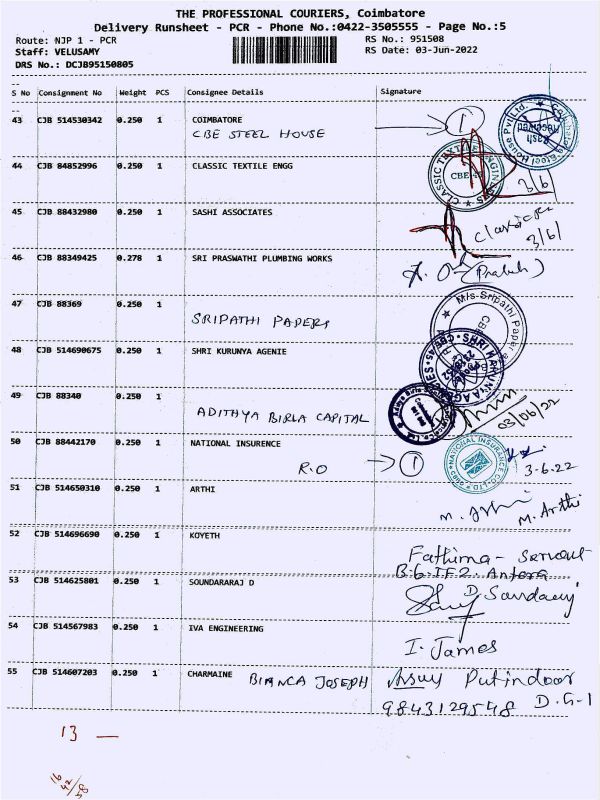 THE PROFESSIONAL COURIERS, Coimbatore
Delivery Runsheet - PCR - Phone No.:0422-3505555 - Page No.:5
Route: NJP 1 - PCR RS No.: 951508
Staff: VELUSAMY RS Date: 03-Jun-2022
DRS No.: DCJB95150805
S No Consignment No Weight PCS Consignee Details Signature
43 CJB 514530342 0.250 1 COIMBATORE 1
CBE STEEL HOUSE
44 CJB 84852996 0.250 1 CLASSIC TEXTILE ENGG CBE
3/6
45 CJB 88432980 0.250 1 SASHI ASSOCIATES
3/6/
46 CJB 88349425 0.278 1 SRI PRASWATHI PLUMBING WORKS
47 CJB 88369 0.250 1 M/s-Sripathi Paper
SRIPATHI PAPERS
48 CJB 514690675 0.250 1 SHRI KURUNYA AGENIE
49 CJB 88340 0.250 1
ADITHYA BIRLA CAPITAL 03/06/22
50 CJB 88442170 0.250 1 NATIONAL INSURENCE NATIONAL INSURANCE CO.LTD
R.O 1 3-6-22
51 CJB 514650310 0.250 1 ARTHI
M. Arthi
52 CJB 514696690 0.250 1 KOYETH
Fathima - Servant
B.6.TF2. Antara
53 CJB 514625801 0.250 1 SOUNDARARAJ D
54 CJB 514567983 0.250 1 IVA ENGINEERING
I. James
55 CJB 514607203 0.250 1 CHARMAINE BIANCA JOSEPH
9843129548 D.G-1
13 —
16
42
58